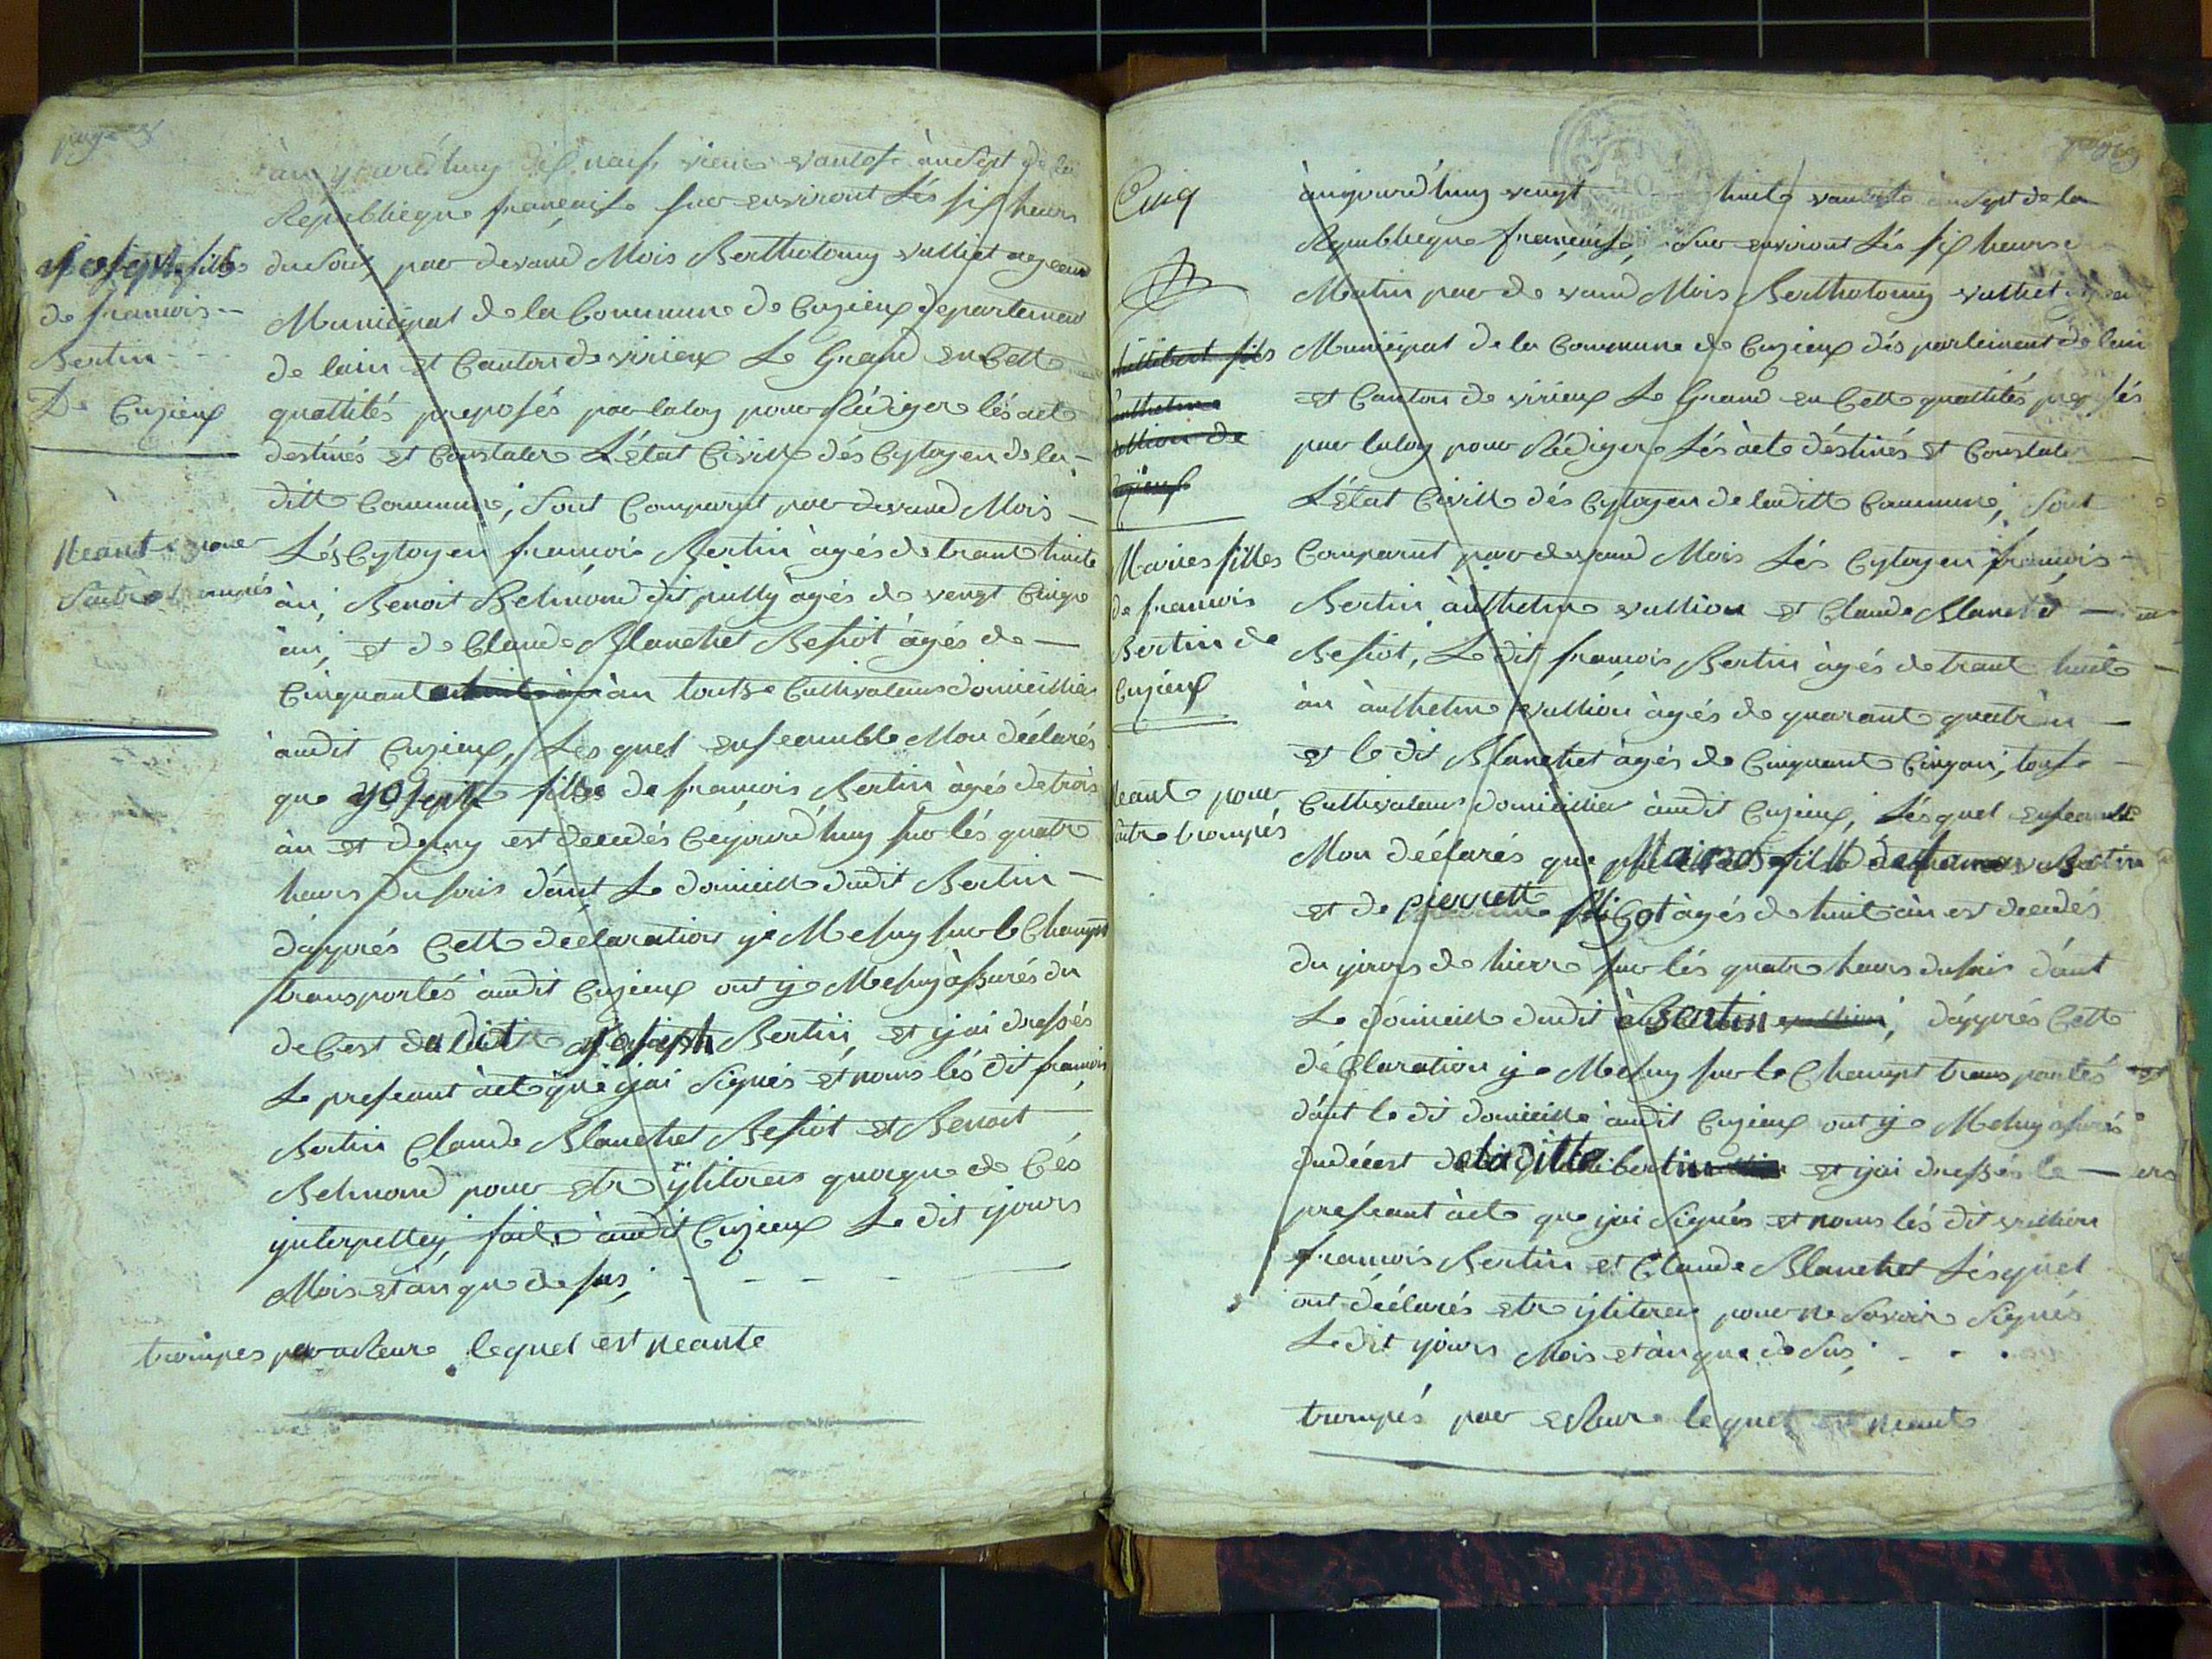 page
aujourd'huy dix neuf vantose àn sept de la
Republieque françoise sur environt lés six heurs
du Soir par devand Mois Bertholomy vulliet ageant
Municipal de la Commune de Cuzieux departement
de lain et Canton de virieux Le Grand en Cette
quallités preposés par laloy pour Rédiger lés act
destinés et Constater L'état Civille dés Cytoyen de la
ditte Commune, Sont Comparut par devand Mois
Lés Cytoyen francois Bertin àgés de trant huite
àn, Benoit Belmond dit pully àgés de vengt Cinqe
àn, et de Claude Blanchet Besiot àgés de
Cinquant àn toutse Cultivateurs domicillier
àudit Cuzieux, Lesquel ensemmble Mon déclarés
que yoseph fille de françois Bertin àgés de trois
àn et demy est decedés Cejourd'huy sur lés quatre
heurs du soir dant Le domicille dudit Bertin
d'apprés Cette déclaration je Me suy sur le Champt
transportés àudit Cuzieux ont je Me suy assurés du
decest du dit yoseph Bertin, et jai dressés
Le preseant àct que jai Signés et nous lés dit francois
Bertin Claude Blanchet Besiot et Benoit
Belmond pour etr ÿliterés quoique de Cés
ynterpelley, fait àudit Cuzieux Le dit yours
Mois et àn que de sus,
trompes par erreure lequel est neante
yoseph fille
de francois
Bertin
De Cuzieux
Neant pour
trompés
page
Cinq
fils
de
Maries filles
de francois
Bertin de
Cuzieux
neant pour
trompés
àujourd'huy vengt huite vantose àn Sept de la
Republieque françoise, Sur environt Lés six heurs
Matin par de vand Mois Bertholomy vulliet
Municipal de la Commune de Cuzieux dés partement de lain
et Canton de virieux Le Grand en Cette quallités preposés
par laloy pour Rédiger Lés àct déstinés et Constater
L'état Civille dés Cytoyen de laditte Commune, Sont
Comparut par devand Mois Lés Cytoyen françois
Bertin ànthelme vullion et Claude Blanchet
Besiot, Le dit françois Bertin àgés de trant huit
àn ànthelme vullion àgés de quarant quatr àn
et le dit Blanchet àgés de Cinquant Cinq àn, touse
Cultivateurs domicillier àudit Cuzieux, Lésquel enseamble
Mon déclarés que Maries fille de francois Bertin
et de pierrett Migot àgés de huit àn est decedés
du yours de hierre sur lés quatre heurs du soir dant
Le domicille dudit Bertin, d'apprés Cette
déClaration je Me suy sur le Champt transportés
dant le dit domicille àudit Cuzieux ont je Me suy assurés
du décest de la ditte bertin et jai dressés le
preseant àct que jai Signés et nous lés dit vullion
francois Bertin et Claude Blanchet Lésquel
ont déclarés etr ÿliterés pour ne Savoir Signés
Le dit yours Mois et àn que de Sus,
trompés par erreure lequel est neante